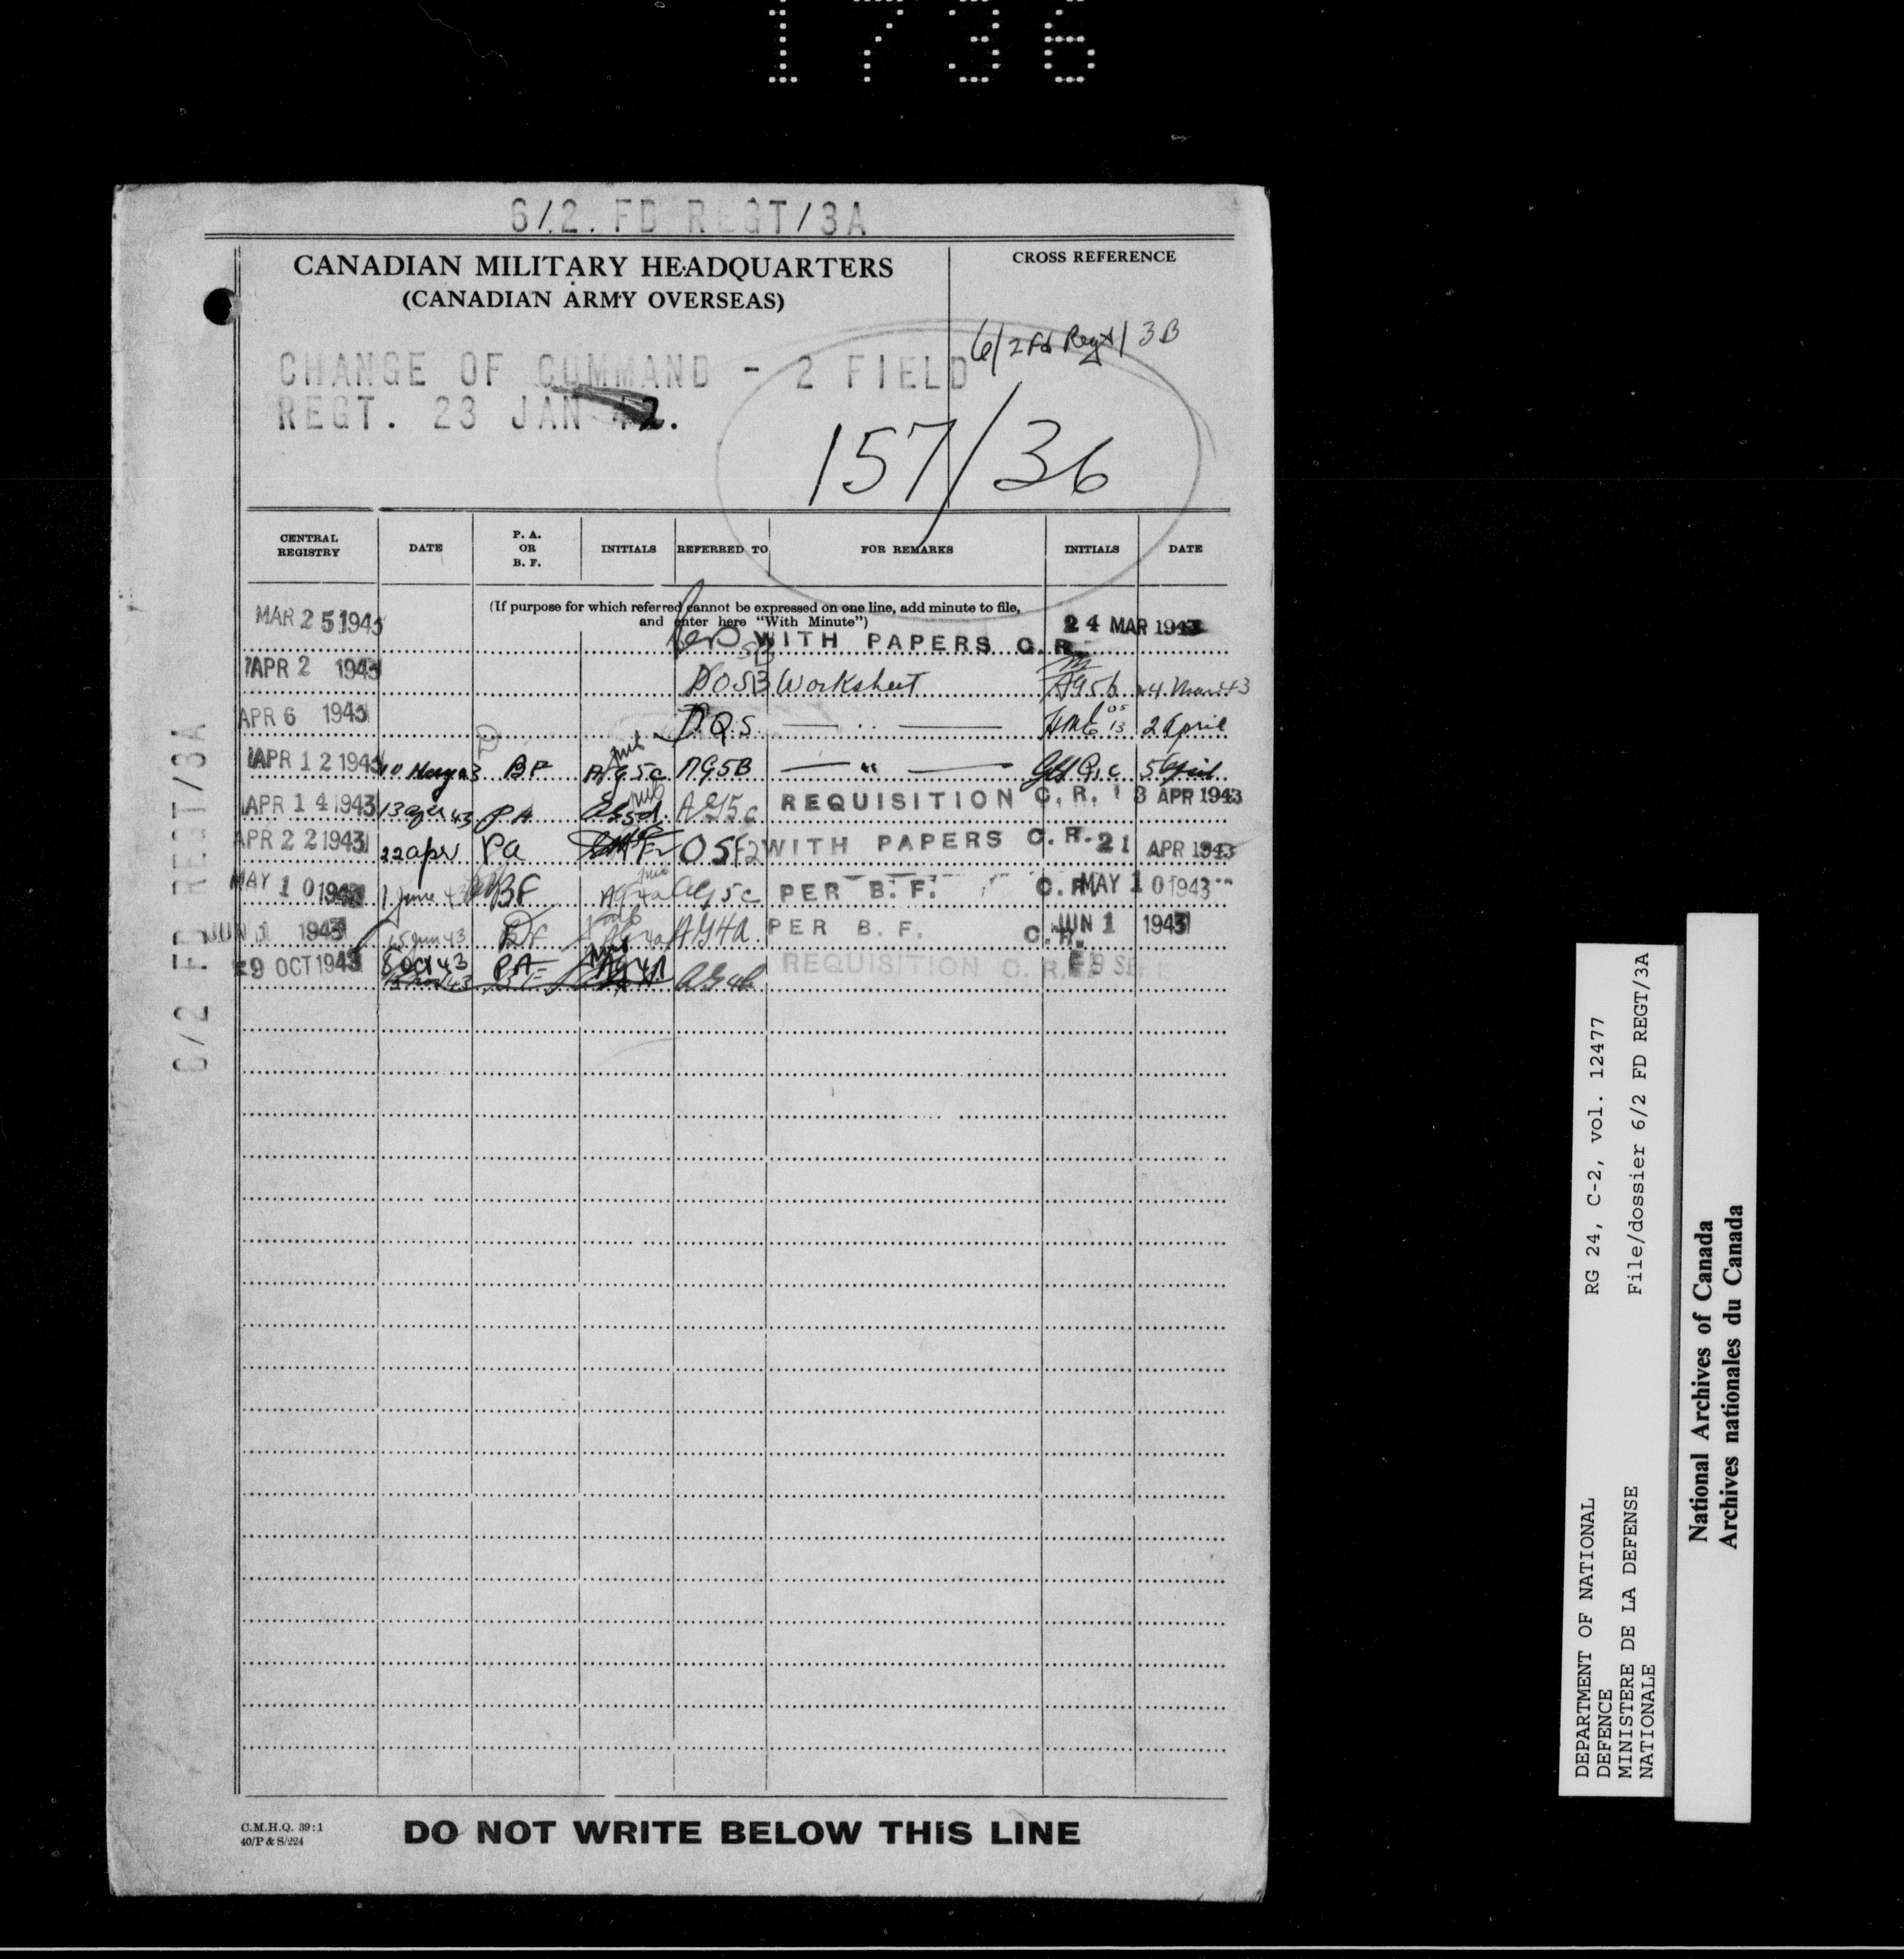 1736
6/2. FD REGT/3A
CANADIAN MILITARY HEADQUARTERS
(CANADIAN ARMY OVERSEAS)
CROSS REFERENCE
6/2 Fd Regt/3B
CHANGE OF COMMAND - 2 FIELD
REGT. 23 JAN
157/36
CENTRAL REGISTRY DATE P. A. OR B. F. INITIALS REFERRED TO FOR REMARKS INITIALS DATE
(If purpose for which referred cannot be expressed on one line, add minute to file,
and enter here "With Minute")
MAR 25 1943 WITH PAPERS C.R. 24 MAR 1943
APR 2 1943 Worksheet AG5b 24 Mar 43
APR 6 1943 2 April
APR 12 1943 BF AG5c AG5B — " — 5 April
APR 14 1943 13 Apr 43 PA AG5c REQUISITION C.R. 13 APR 1943
APR 22 1943 22 Apr Pa OSF2 WITH PAPERS C.R. 21 APR 1943
MAY 10 1943 1 June 43 BF AG5c PER B.F. C.R. MAY 10 1943
JUN 1 1943 15 Jun 43 BF AG4a PER B.F. C.R. JUN 1 1943
29 OCT 1943 8 Oct 43 PA AG4a REQUISITION C.R.
6/2 FD REGT/3A
C.M.H.Q. 39:1
40/P & S/224
DO NOT WRITE BELOW THIS LINE
DEPARTMENT OF NATIONAL
DEFENCE
MINISTERE DE LA DEFENSE
NATIONALE
RG 24, C-2, vol. 12477
File/dossier 6/2 FD REGT/3A
National Archives of Canada
Archives nationales du Canada